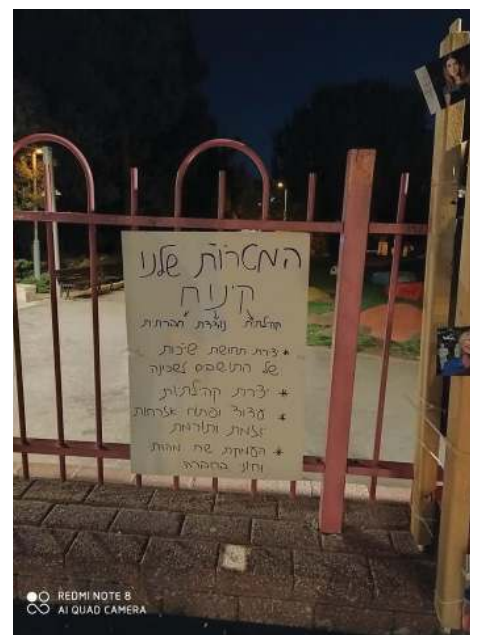 המטרות שלנו
קינוח
קהילתית נוצרת חברתית
* יצירת תחושת שייכות
של התושבים לשכונה
* יצירת קהילתיות
* עידוד ופיתוח אזרחות
יוזמת ותורמת
* העמקת שיח מהות
וחזון בחברה
REDMI NOTE 8
AI QUAD CAMERA